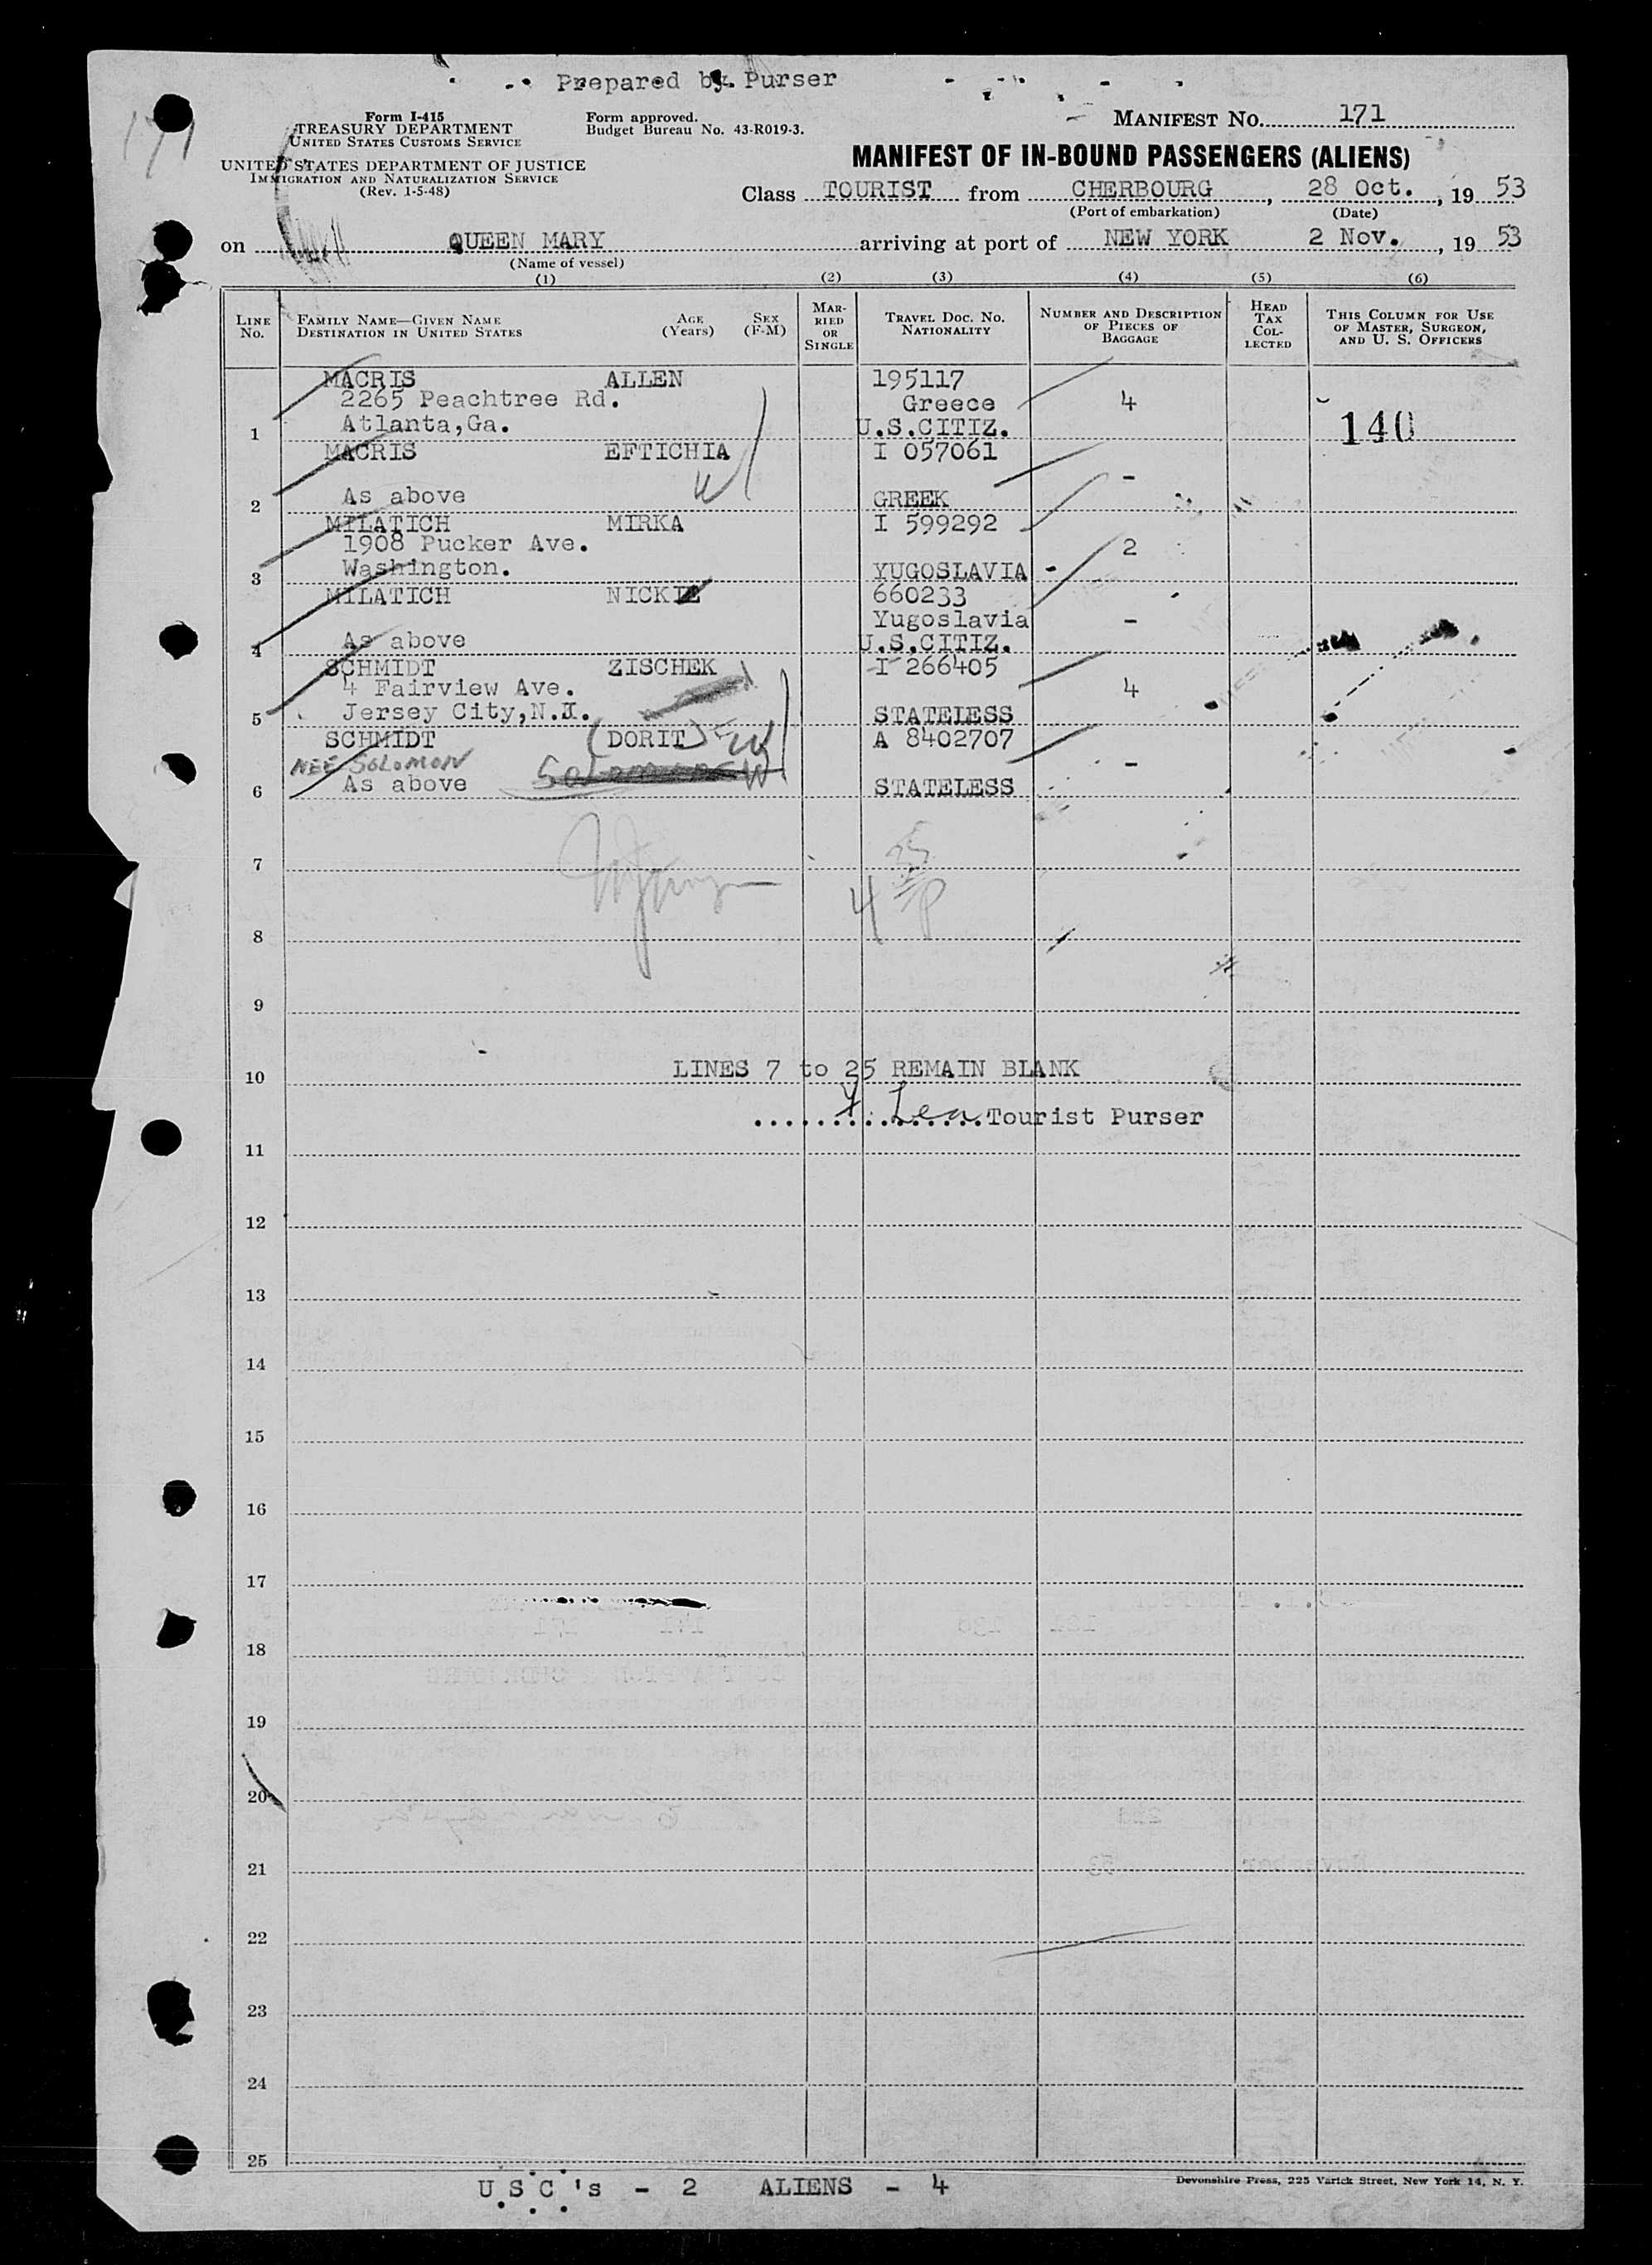 Prepared by Purser
171
Form I-415
TREASURY DEPARTMENT
UNITED STATES CUSTOMS SERVICE
UNITED STATES DEPARTMENT OF JUSTICE
IMMIGRATION AND NATURALIZATION SERVICE
(Rev. 1-5-48)
Form approved.
Budget Bureau No. 43-R019-3.
MANIFEST NO. 171
MANIFEST OF IN-BOUND PASSENGERS (ALIENS)
Class TOURIST from CHERBOURG, 28 Oct., 19 53
(Port of embarkation) (Date)
on QUEEN MARY arriving at port of NEW YORK 2 Nov., 19 53
(Name of vessel)
(1) (2) (3) (4) (5) (6)
LINE NO. FAMILY NAME—GIVEN NAME DESTINATION IN UNITED STATES AGE (Years) SEX (F-M) MARRIED OR SINGLE TRAVEL DOC. NO. NATIONALITY NUMBER AND DESCRIPTION OF PIECES OF BAGGAGE HEAD TAX COLLECTED THIS COLUMN FOR USE OF MASTER, SURGEON, AND U. S. OFFICERS
MACRIS ALLEN 195117
2265 Peachtree Rd. Greece 4
1 Atlanta,Ga. U.S.CITIZ. 140
MACRIS EFTICHIA I 057061
W -
2 As above GREEK
MILATICH MIRKA I 599292
1908 Pucker Ave. 2
3 Washington. YUGOSLAVIA
MILATICH NICKIE 660233
Yugoslavia -
4 As above U.S.CITIZ.
SCHMIDT ZISCHEK I 266405
4 Fairview Ave. 4
5 Jersey City,N.J. STATELESS
SCHMIDT (DORIT) W A 8402707
NEE SOLOMON -
6 As above W STATELESS
7
4
8
9
LINES 7 to 25 REMAIN BLANK
10
Lea Tourist Purser
11
12
13
14
15
16
17
18
19
20
21
22
23
24
25
U S C 's - 2 ALIENS - 4
Devonshire Press, 225 Varick Street, New York 14, N. Y.